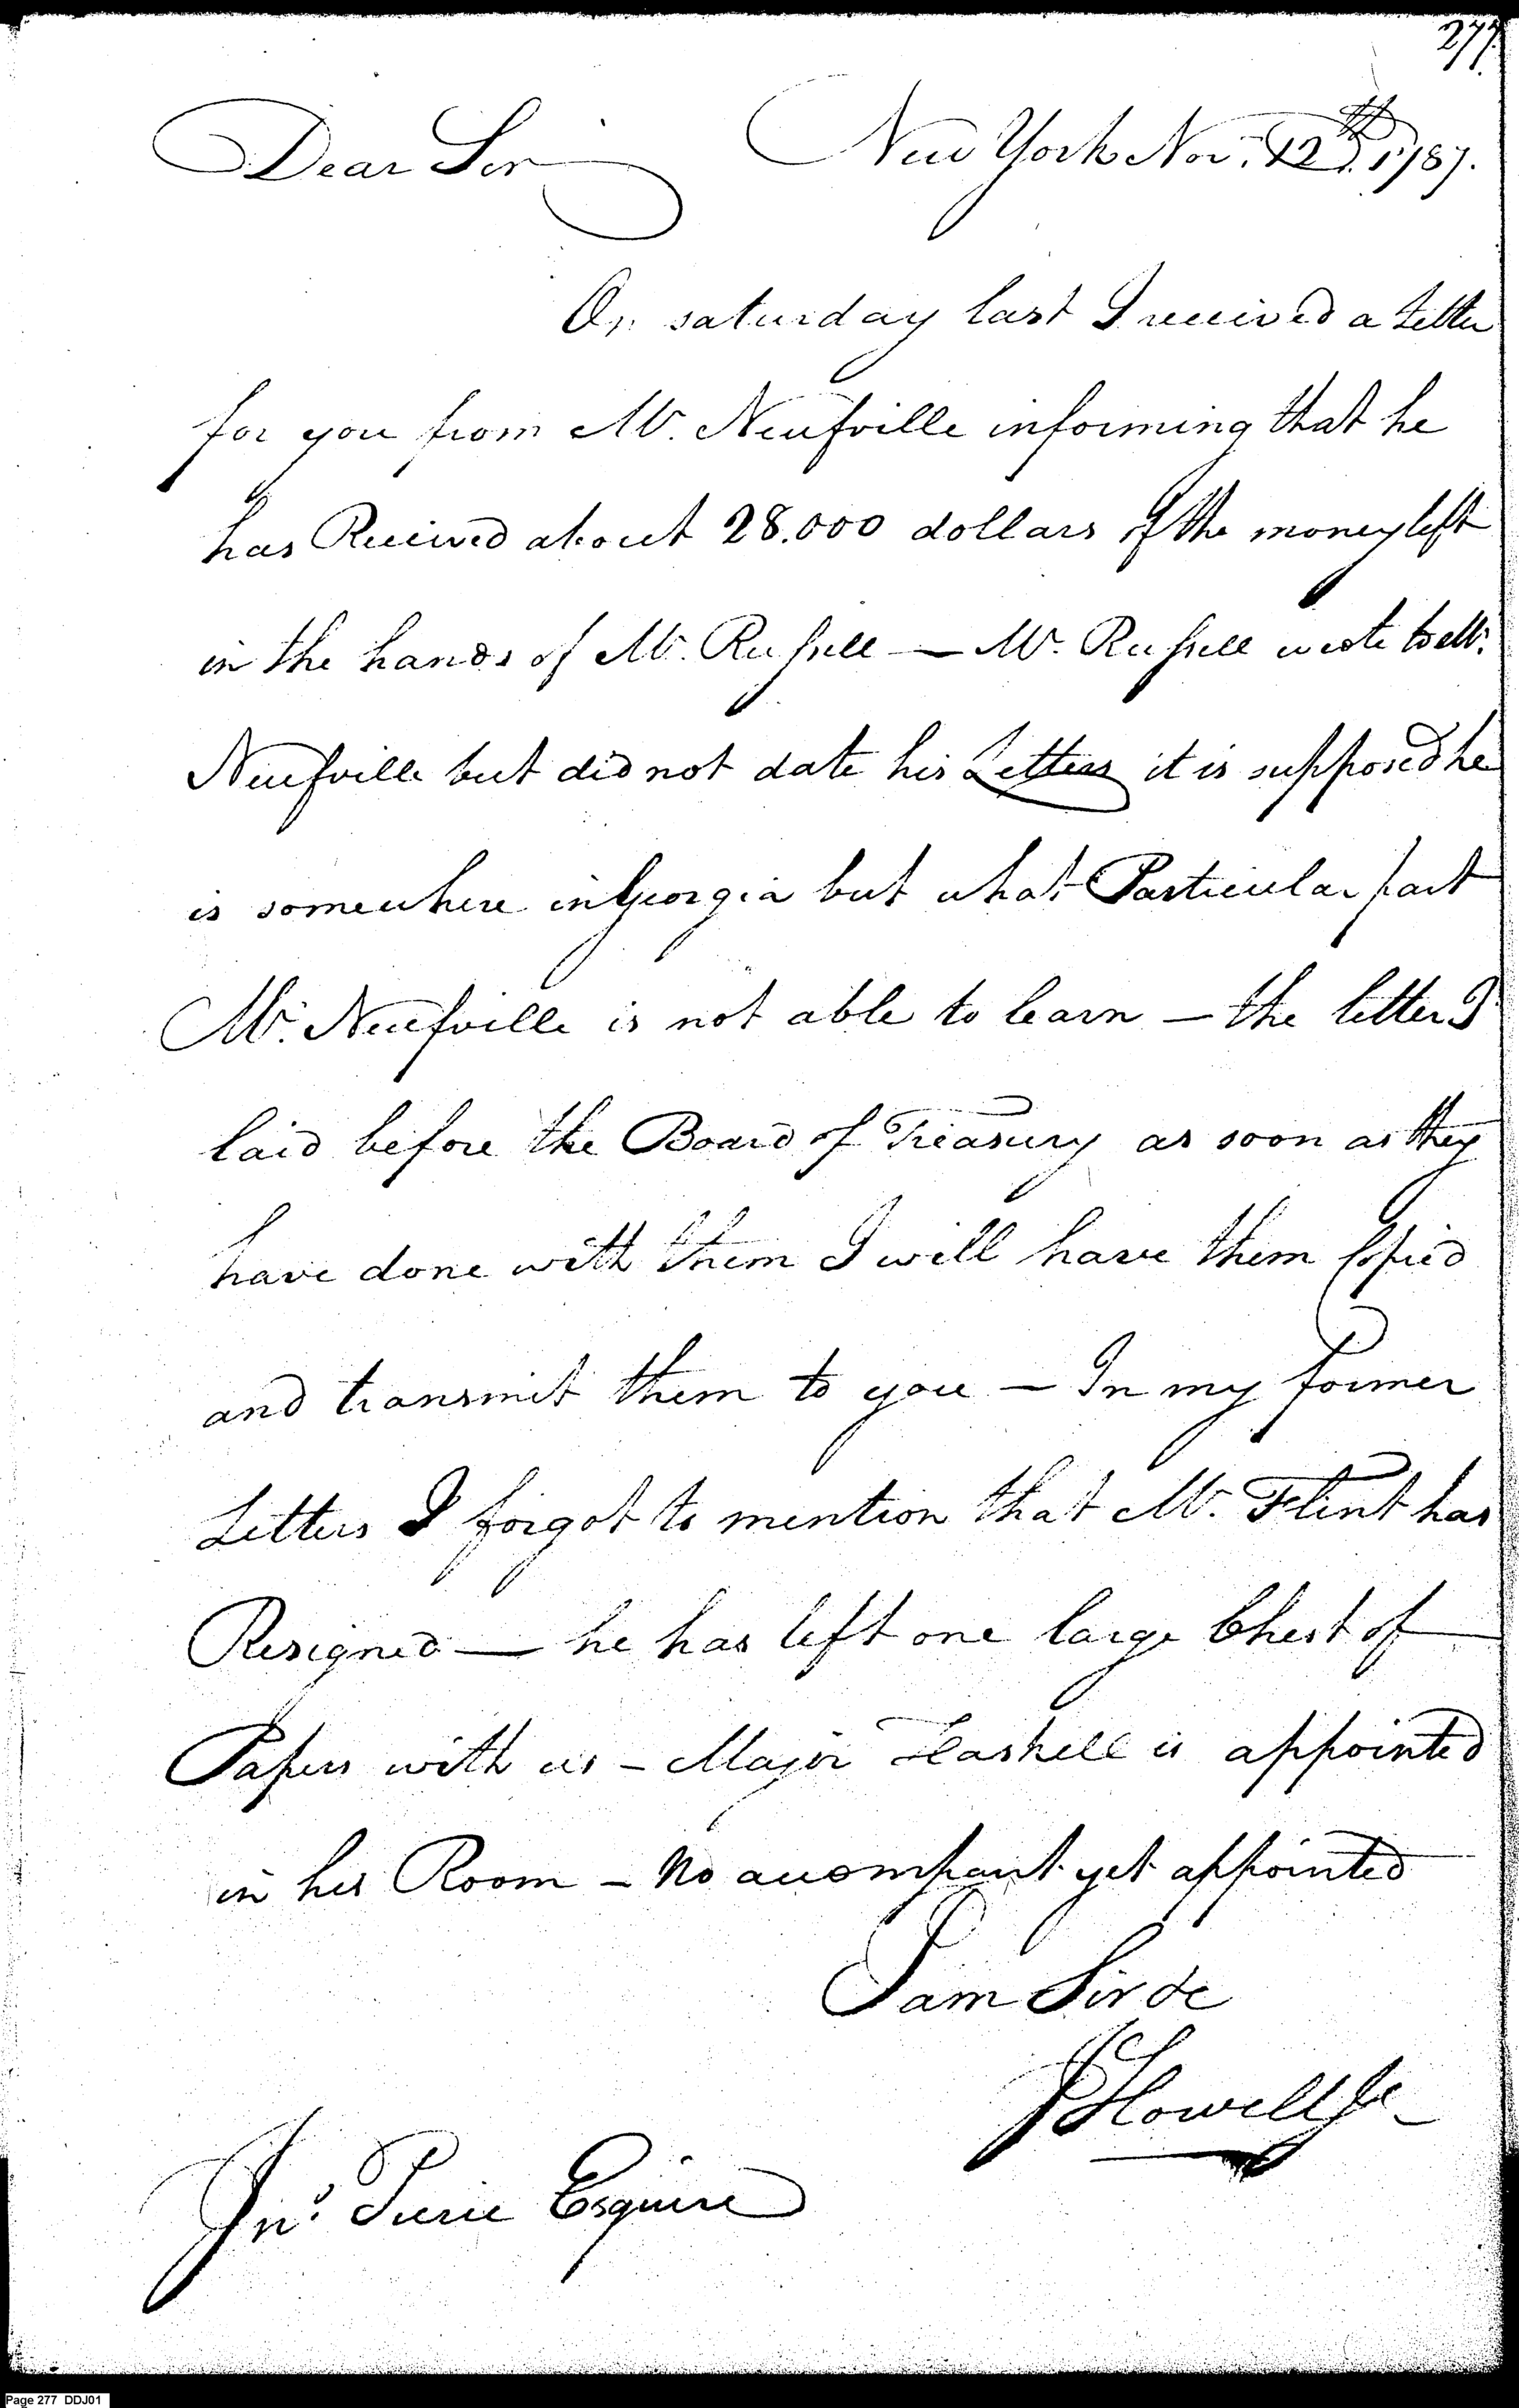 277.
Dear Sir New York Nov. 12th. 1787.
On saturday last I received a Letter
for you from Mr. Neufville informing that he
has Recived about 28.000 dollars of the money left
in the hands of Mr. Russell — Mr. Russell wrote to Mr.
Neufville but did not date his Letters it is supposed he
is somewhere in Georgia but what Particular part
Mr. Neufville is not able to learn — the letter I
laid before the Board of Treasury as soon as they
have done with them I will have them Copied
and transmit them to you — In my former
Letters I forgot to mention that Mr. Flint has
Resigned — he has left one large Chest of
Papers with us — Major Haskell is appointed
in his Room — No accomptant yet appointed
I am Sir &c
J Howell Jr
Jno. Pierce Esquire
Page 277 DDJ01